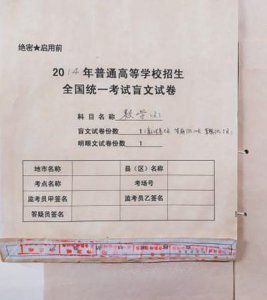 绝密★启用前
2014年普通高等学校招生
全国统一考试盲文试卷
科目名称 数学
盲文试卷份数 1
明眼文试卷份数 1
地市名称 县(区)名称
考点名称 考场号
监考员甲签名 监考员乙签名
答疑员签名